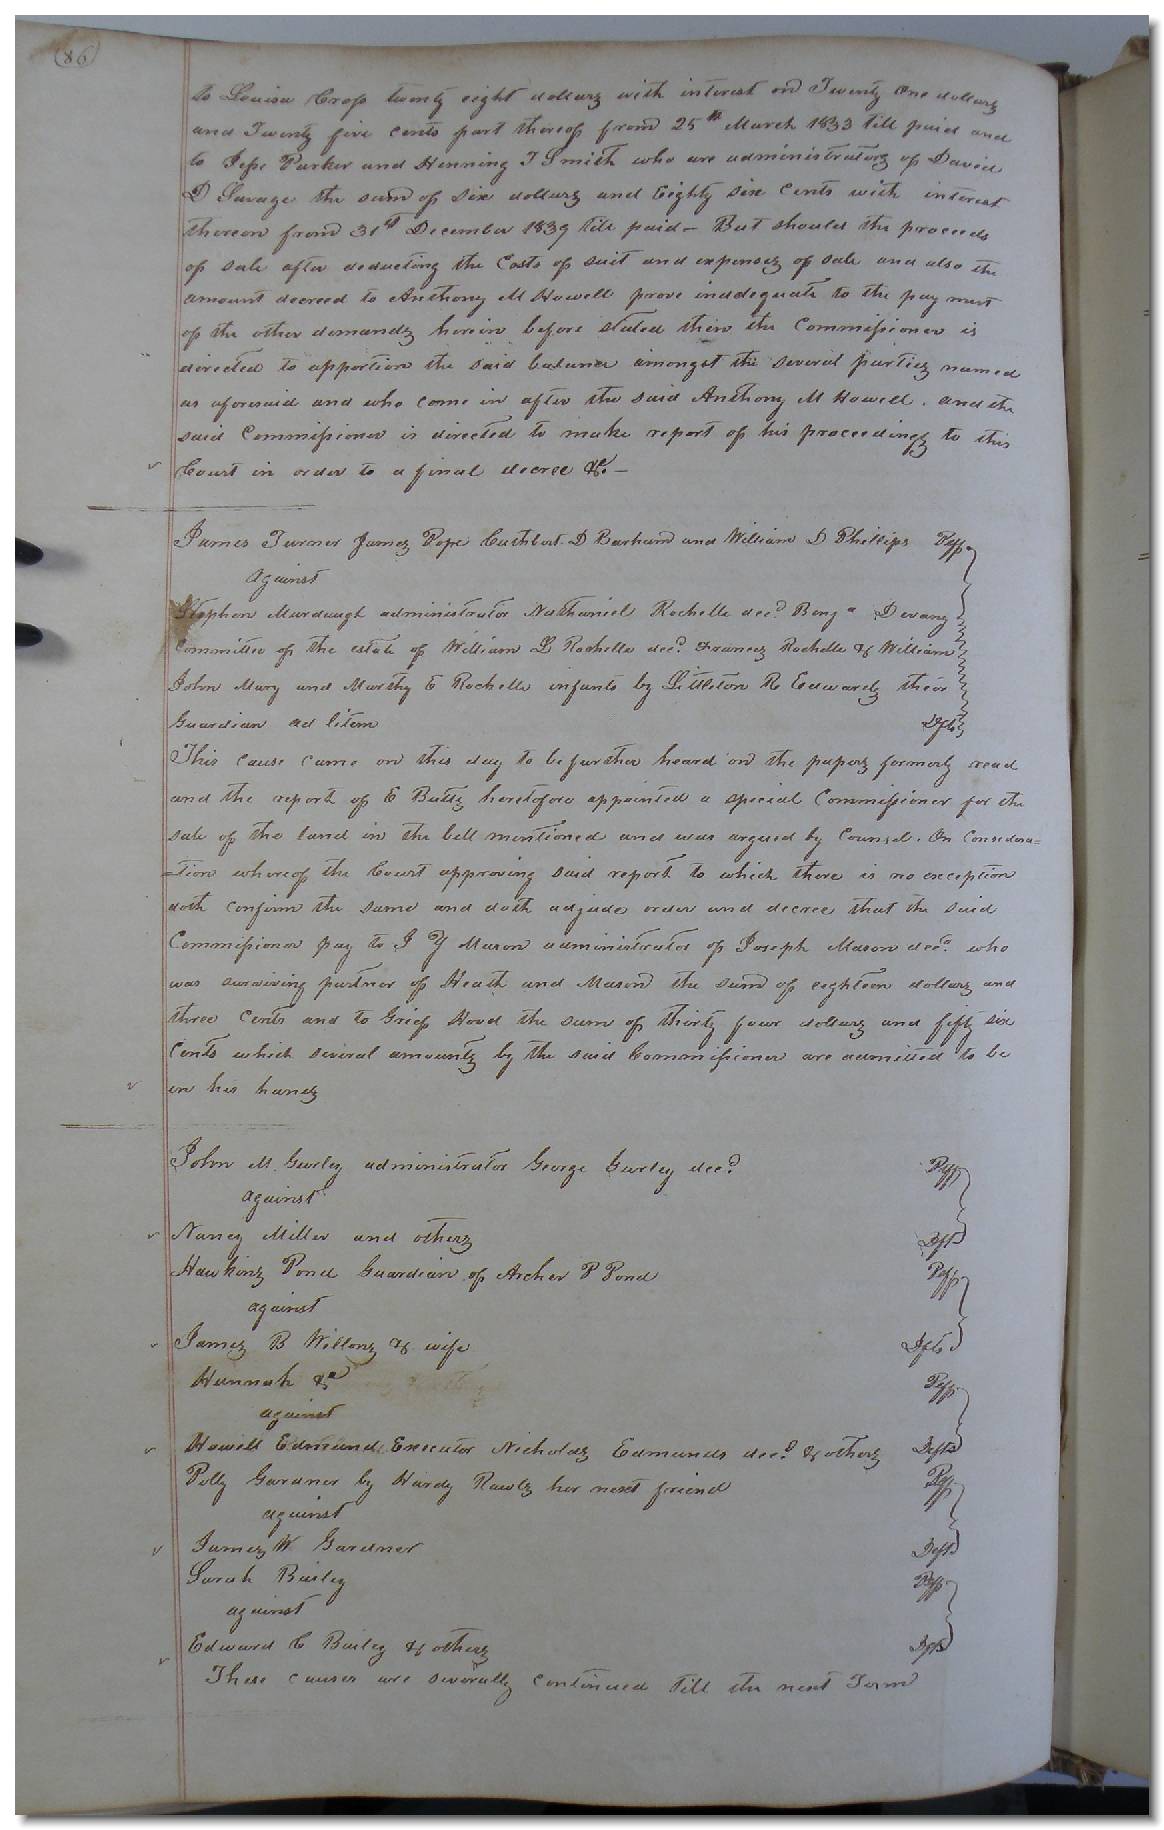 (86)
to Louisa Cross twenty eight dollars with interest on Twenty One dollars
and Twenty five cents part thereof from 25th March 1833 till paid and
to Jesse Parker and Henning T Smith who are administrators of David
D Savage the sum of six dollars and Eighty six Cents with interest
thereon from 31st December 1839 till paid – But should the proceeds
of sale after deducting the Costs of suit and expenses of sale and also the
amount decreed to Anthony M Howell prove inadequate to the payment
of the other demands herein before stated then the Commissioner is
directed to apportion the said balance amongst the several parties named
as aforesaid and who come in after the said Anthony M Howell. and the
said Commissioner is directed to make report of his proceedings to this
Court in order to a final decree &c. –
James Turner James Pope Cuthbert D Barham and William D Phillips Plffs
against
Stephen Murdaugh administrator Nathaniel Rochelle decd. Benja Devany
Committee of the estate of William L Rochelle decd. Frances Rochelle & William
John Mary and Martha E Rochelle infants by Littleton R Edwards their
Guardian ad litem Defts
This cause came on this day to be further heard on the papers formerly read
and the report of E Butts heretofore appointed a special Commissioner for the
sale of the land in the bill mentioned and was argued by Counsel. On Considera=
=tion whereof the Court approving said report to which there is no exception
doth confirm the same and doth adjude order and decree that the said
Commissioner pay to J Y Mason administrator of Joseph Mason decd. who
was surviving partner of Heath and Mason the sum of eighteen dollars and
three Cents and to Griff Hood the sum of thirty four dollars and fifty six
Cents which several amounts by the said Commissioner are admitted to be
in his hands
John M. Gurley administrator George Gurley decd. Plff
against
Nancy Miller and others Defts
Hawkins Pond Guardian of Archer P Pond Plff
against
James B Willons & wife Defts
Hannah &c Plffs
against
Howell Edmunds Executor Nicholas Edmunds decd. & others Defts
Polly Gardner by Hardy Rawls her next friend Plff
against
James W Gardner Deft
Sarah Bailey Plff
against
Edward C Bailey & others Defts
These causes are severally continued till the next Term